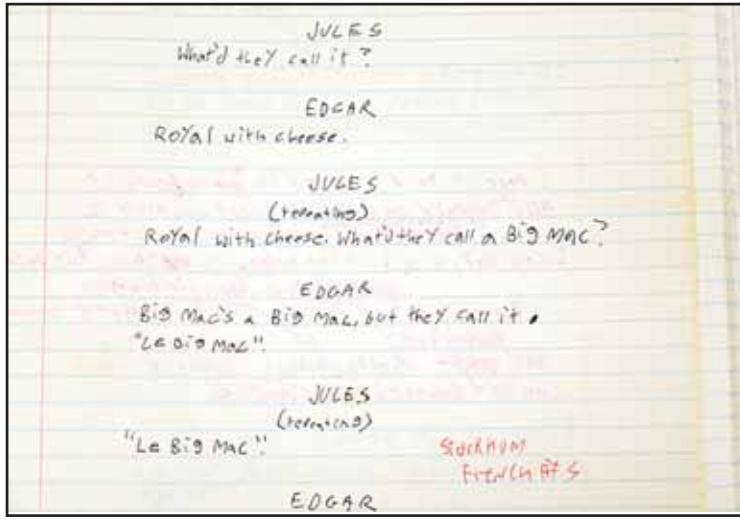 JULES
What'd they call it?
EDGAR
Royal with cheese.
JULES
(repeating)
Royal with cheese. What'd they call a Big Mac?
EDGAR
Big Mac's a Big Mac, but they call it
"Le Big Mac".
JULES
(repeating)
"Le Big Mac".
French
EDGAR